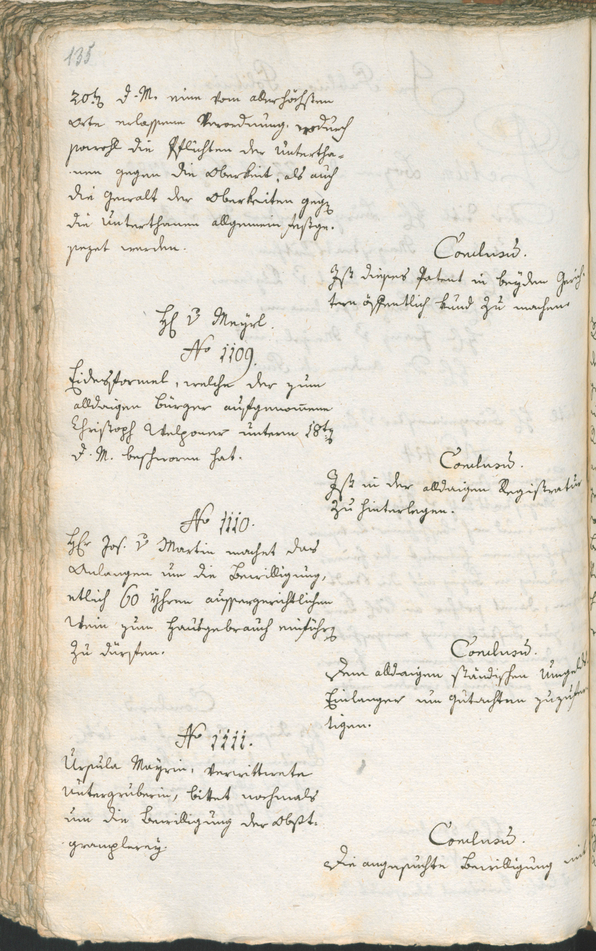 135
20t d. M. eine vom allerhöchsten
Orte erlassene Verordnung, wodurch
sowohl die Pflichten der Untertha-
nen gegen die Oberkeit, als auch
die Gewalt der Oberkeiten geg
die Unterthanen allgemein festge-
sezet werden.
Conclusũ.
Ist dieses Patent in beyden Gerich-
tern öffentlich kund zu machen
H v Meyrl.
No 1109.
Eidesformel, welche der zum
alldaigen Bürger aufgenom̅ene
Christoph Welponer unterm 18t
d. M. beschworen hat.
Conclusũ.
Ist in der alldaigen Registratur
zu hinterlegen.
No 1110.
H Jos. v Martin machet das
Anlangen um die Bewilligung,
etlich 60 Yhren aussergerichtlichen
Wein zum Hausgebrauch einführ
zu dürfen.
Conclusũ.
Dem alldaigen ständischen Umgeld
Einlanger um Gutachten zuzufer
tigen.
No 1111.
Ursula Mayrin, verwittwete
Untergruberin, bittet nochmals
um die Bewilligung der Obst-
gramplerey.
Conclusũ.
Die angesuchte Bewilligung